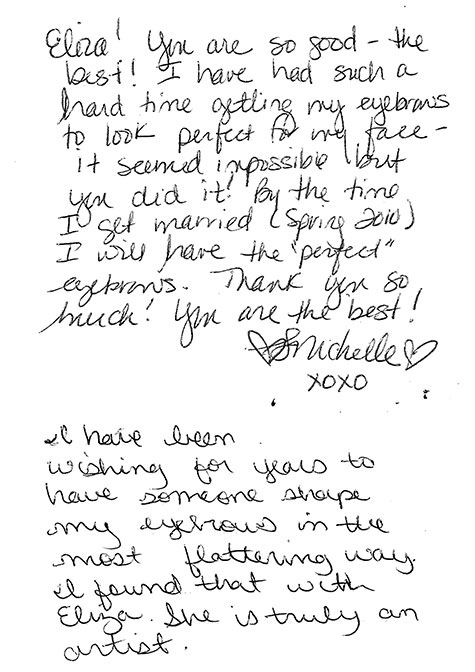 Eliza! You are so good - the
best! I have had such a
hard time getting my eyebrows
to look perfect for my face -
it seemed impossible but
you did it! By the time
I get married (Spring 2010)
I will have the "perfect"
eyebrows. Thank you so
much! You are the best!
♡Michelle♡
xoxo
I have been
wishing for years to
have someone shape
my eyebrows in the
most flattering way.
I found that with
Eliza. She is truly an
artist.